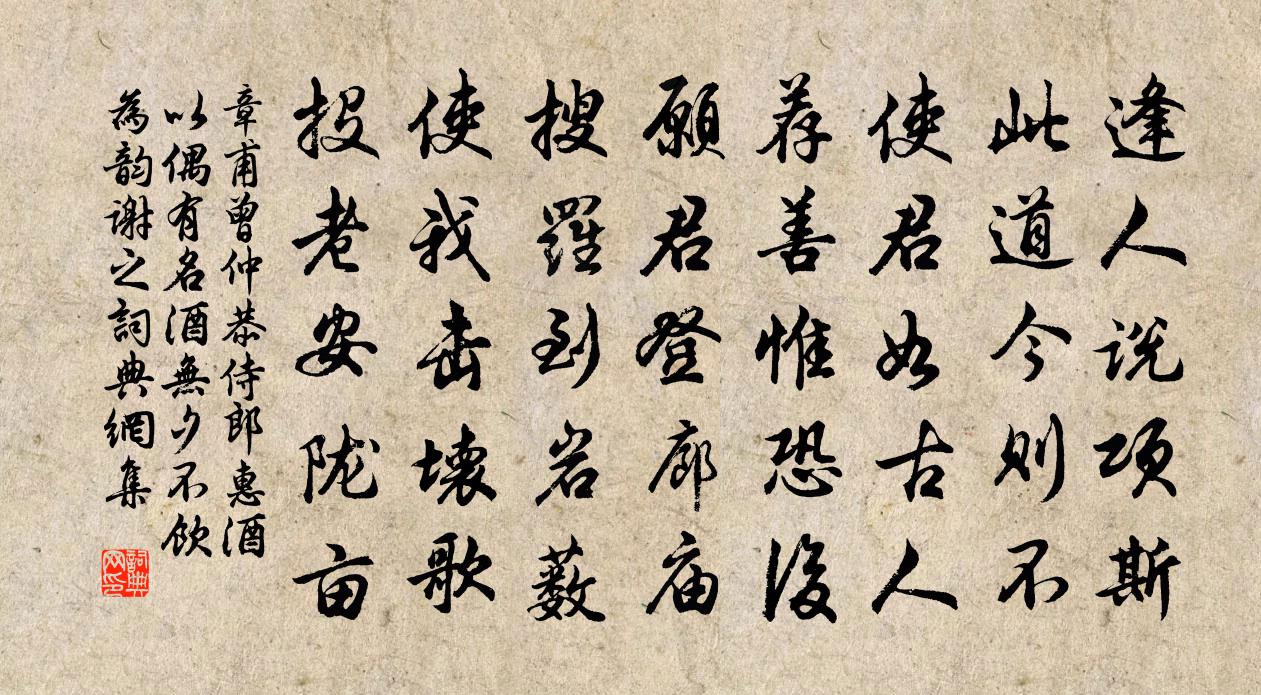 逢人说项斯
此道今则不
使君如古人
荐善惟恐後
願君登廊庙
搜羅到岩薮
使我击壤歌
投老安陇亩
章甫曾仲恭侍郎惠酒
以偶有名酒無夕不飲
為韵谢之詞典網集
詞典网印